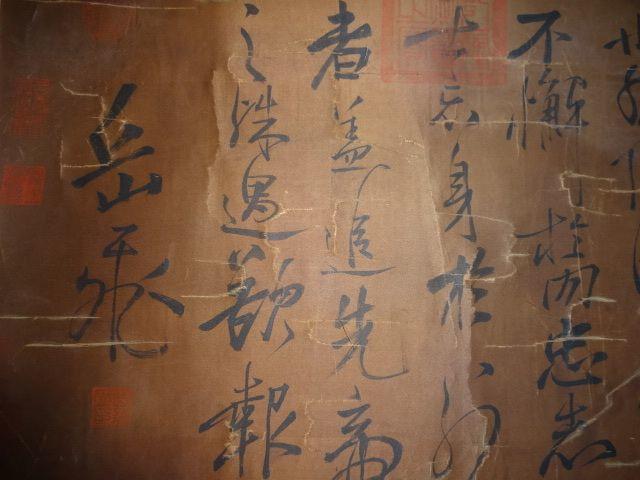 不懈於内忠志
士忘身於外
者盖追先帝
之殊遇欲報
岳飛